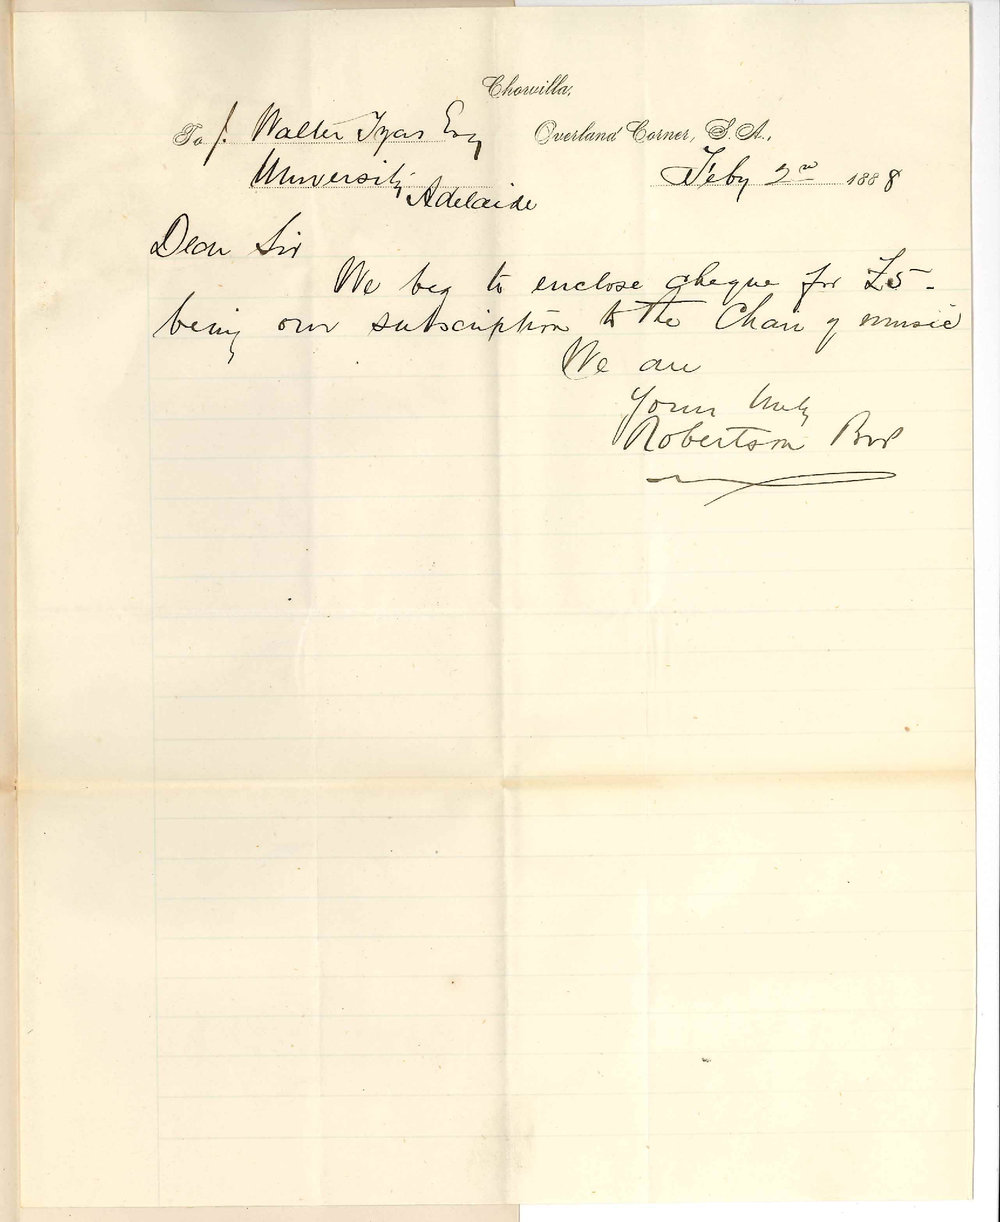 Chowilla,
To J. Walter Tyas Esq
Overland Corner, S. A.,
University
Adelaide
Feby 2nd 1888
Dear Sir
We beg to enclose cheque for £5-
being our subscription to the Chair of music
We are
Yours truly
Robertson Bros